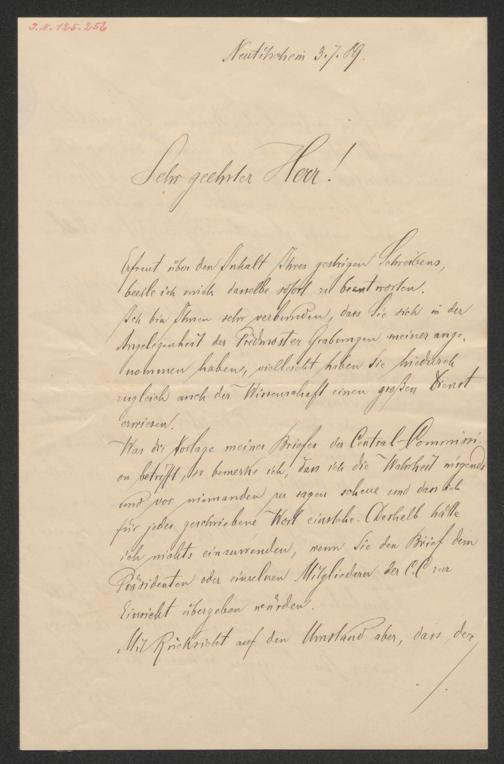 J.N. 125.256
Neutitschein 3.7.89.
Sehr geehrter Herr!
Erfreut über den Inhalt Ihres gestrigen Schreibens,
beeile ich mich dasselbe sofort zu beantworten.
Ich bin Ihnen sehr verbunden, dass Sie sich in der
Angelegenheit der Předmoster Grabungen meiner ange-
nommen haben, vielleicht haben Sie hiedurch
zugleich auch der Wissenschaft einen großen Dienst
erwiesen.
Was die Vorlage meines Briefes der Central-Commissi-
on betrifft, so bemerke ich, dass ich die Wahrheit nirgends
und vor niemanden zu sagen scheue und dass ich
für jedes geschriebene Wort einstehe. Deshalb hätte
ich nichts einzuwenden, wenn Sie den Brief dem
Präsidenten oder einzelnen Mitgliedern der C.C zur
Einsicht übergeben würden.
Mit Rücksicht auf den Umstand aber, dass der